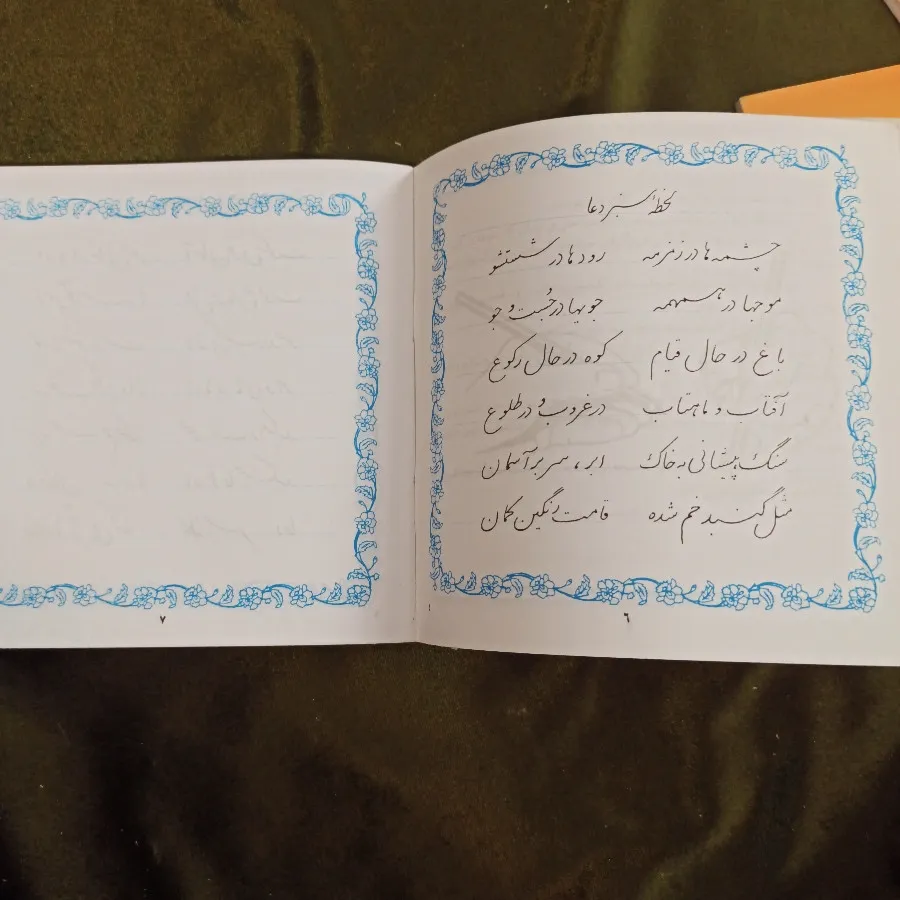 لحظهٔ سبز دعا
چشمه ها در زمزمه رودها در شستشو
موجها در همهمه جویها در جُست و جو
باغ در حال قیام کوه در حال رکوع
آفتاب و ماهتاب در غروب و در طلوع
سنگ پیشانی به خاک ابر، سر بر آسمان
مثل گنبد خم شده قامت رنگین کمان
۶
۷